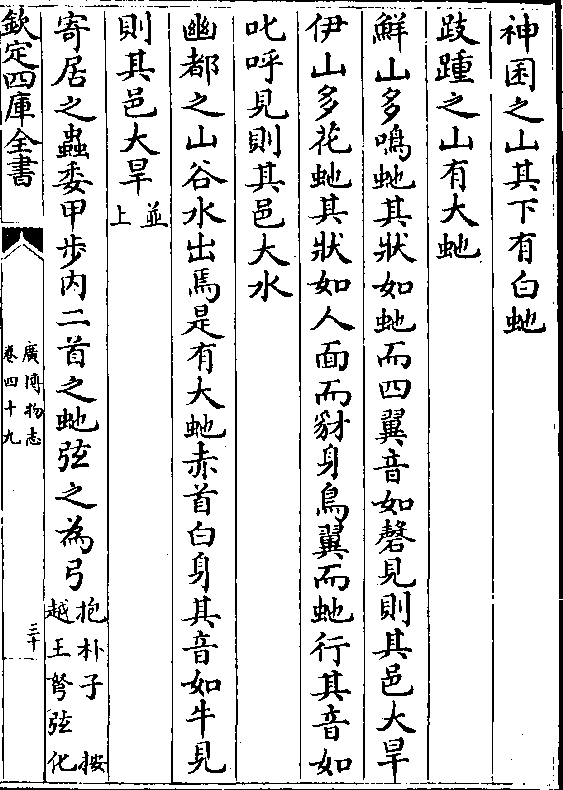 神囷之山其下有白虵
跂踵之山有大虵
鮮山多鳴虵其狀如虵而四翼音如磬見則其邑大旱
伊山多花虵其狀如人面而豺身鳥翼而虵行其音如
叱呼見則其邑大水
幽都之山谷水出焉是有大虵赤首白身其音如牛見
則其邑大旱並上
寄居之蟲委甲步内二首之虵弦之為弓抱朴子 按越王弩弦化
欽定四庫全書
廣博物志
卷四十九
三十